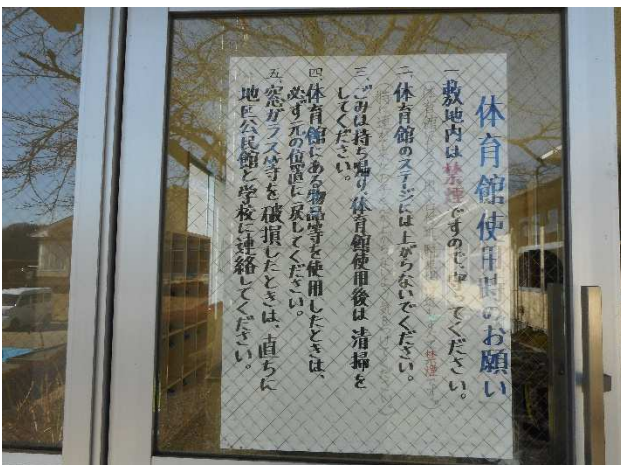 体育館使用時のお願い
一、敷地内は禁煙ですので守ってください。
二、体育館のステージには上がらないでください。
三、ごみは持ち帰り、体育館使用後は清掃を
してください。
四、体育館にある物品等を使用したときは、
必ず元の位置に戻してください。
五、窓ガラス等を破損したときは、直ちに
地区公民館と学校に連絡してください。